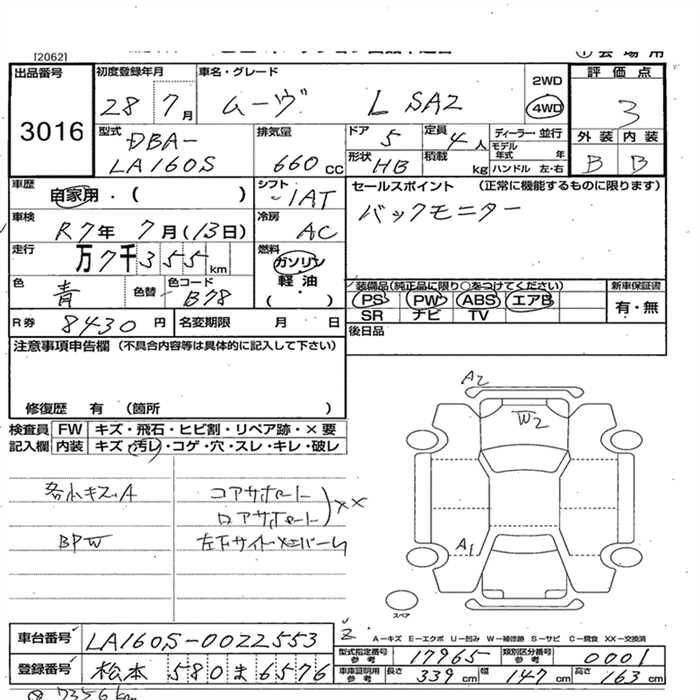 [2062]
① 会場用
出品番号
3016
初度登録年月
28年7月
車名・グレード
ムーヴ L SA2
2WD
4WD
評価点
3
外装 内装
B B
型式
DBA-
LA160S
排気量
660cc
ドア 5
定員 4人
形状 HB
積載 kg
ディーラー・並行
モデル年式 年
ハンドル 左・右
車歴
自家用・( )
シフト
IAT
セールスポイント (正常に機能するものに限ります)
バックモニター
車検
R7年 7月(13日)
冷房
AC
走行
万7千355km
燃料
ガソリン
軽油
( )
色
青
色替
色コード
B78
装備品(純正品に限り○をつけてください)
PS PW ABS エアB
SR ナビ TV
新車保証書
有・無
R券 8430円
名変期限 月 日
後日品
注意事項申告欄 (不具合内容等は具体的に記入して下さい)
修復歴 有 (箇所 )
検査員 FW キズ・飛石・ヒビ割・リペア跡・×要
記入欄 内装 キズ・汚レ・コゲ・穴・スレ・キレ・破レ
各小キズA
BPW
コアサポート
ロアサポート
XX
左下サイドメンバー
A2
W2
A1
スペア
A-キズ E-エクボ U-凹み W-補修跡 S-サビ C-腐食 XX-交換済
車台番号 LA160S-0022553
型式指定番号 参考 17965
類別区分番号 参考 0001
登録番号 松本 580 ま 6576
車庫証明用 参考 長さ 339cm 幅 147cm 高さ 163cm
7356km